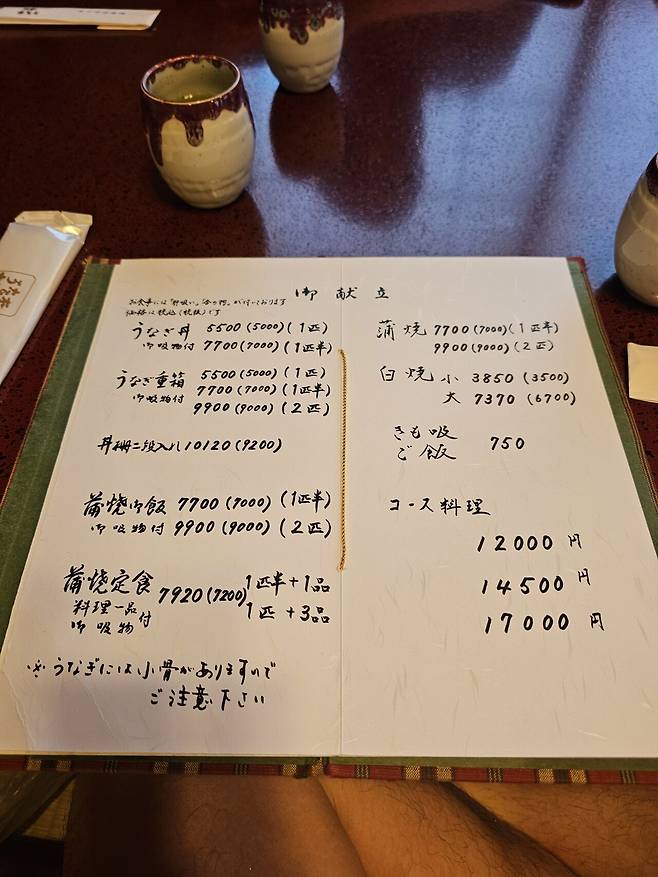 御献立
お食事には「肝吸い」「香の物」が付いております
価格は税込(税抜)です
うなぎ丼 5500(5000)(1匹)
御吸物付 7700(7000)(1匹半)
うなぎ重箱 5500(5000)(1匹)
7700(7000)(1匹半)
御吸物付 9900(9000)(2匹)
丼 二段入り 10120(9200)
蒲焼御飯 7700(7000)(1匹半)
御吸物付 9900(9000)(2匹)
蒲焼定食 7920(7200) 1匹半+1品
料理一品付 1匹+3品
御吸物
※うなぎには小骨がありますので
ご注意下さい
蒲焼 7700(7000)(1匹半)
9900(9000)(2匹)
白焼 小 3850(3500)
大 7370(6700)
きも吸 750
ご飯
コース料理
12000円
14500円
17000円